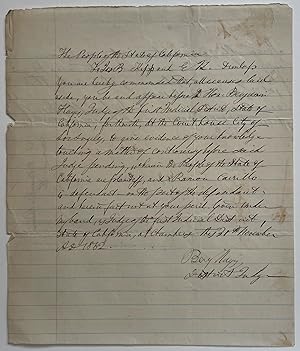 The People of the State of California
To Jno B. Sepp and E. K. Dunlap
You are hereby commanded that, all excuses laid
aside, you be and appear before Hon Benjamin
Hayes, Judge of the first Judicial District, State of
California, forthwith, at the Court house City of
Los Angeles, to give evidence of your knowledge
touching a matter of controversy before said
Judge pending, wherein the People of the State of
California are plaintiff, and Ramon Carrillo
is defendant on the part of the defendant
and herein fail not at your peril. Given under
my hand, as Judge of the first Judicial Dist
State of California, at Chambers this 20th November
A.D. 1862
Benj. Hayes,
District Judge